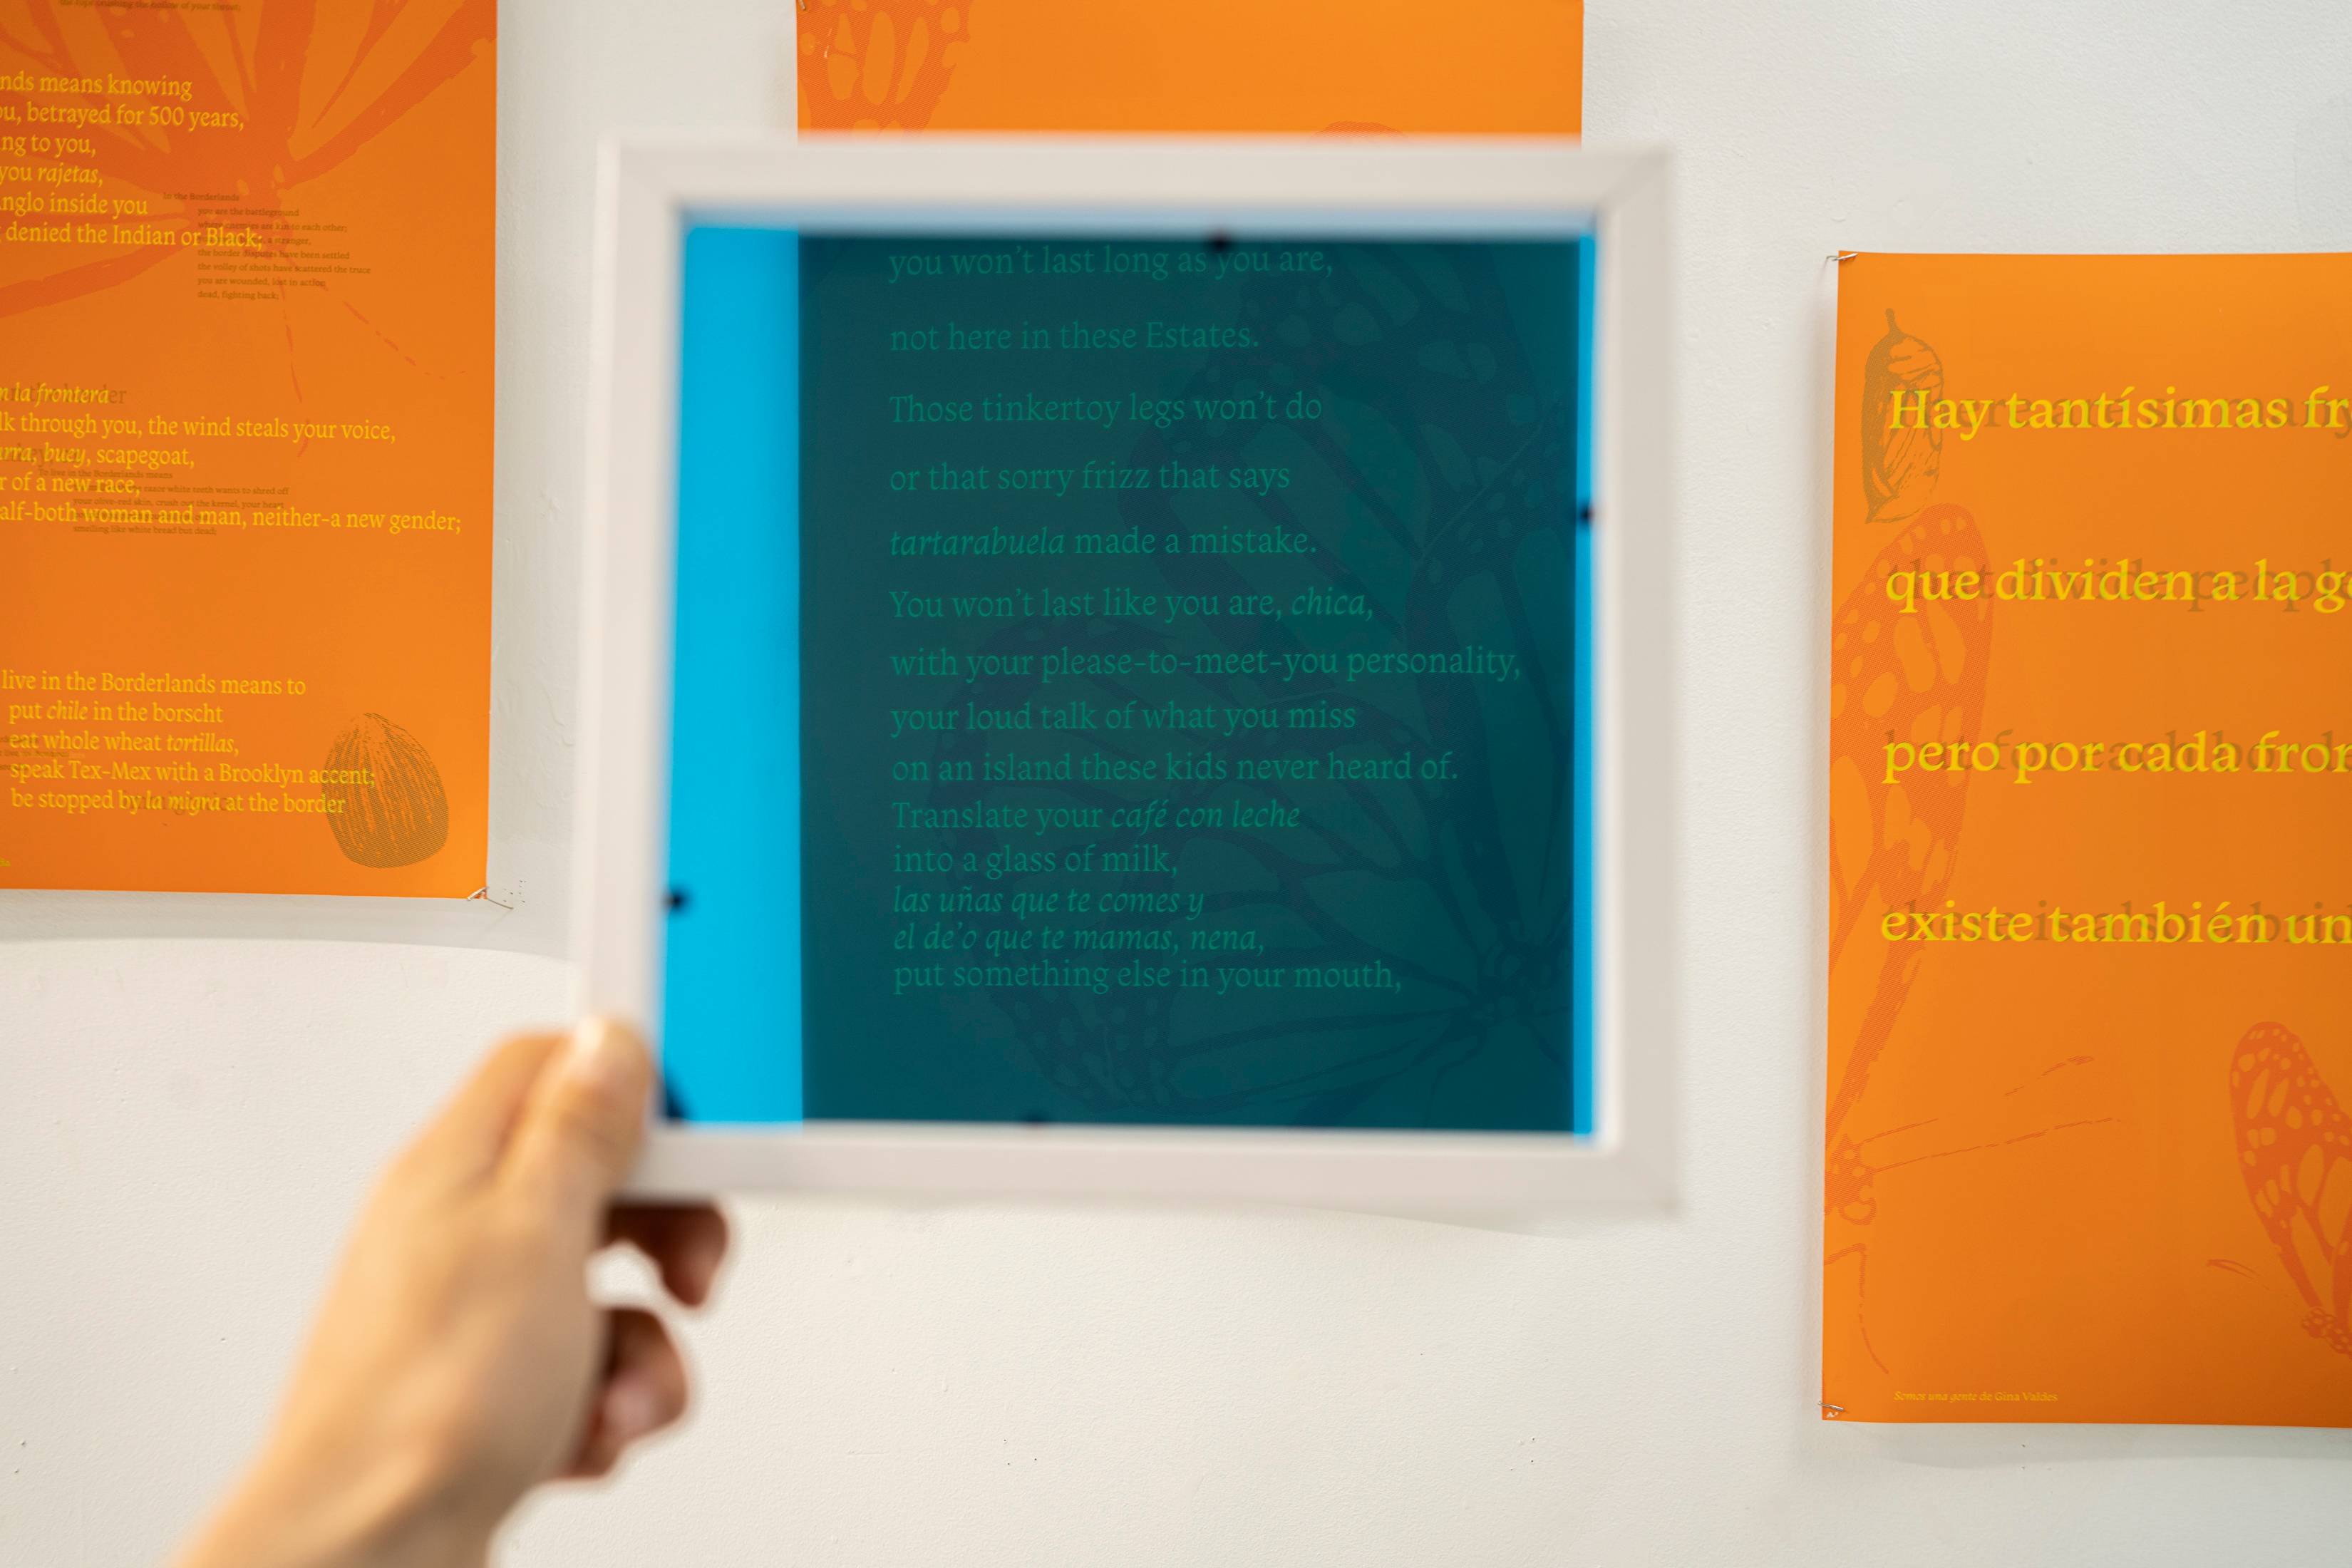 nds means knowing
ou, betrayed for 500 years,
ng to you,
you rajetas,
nglo inside you
denied the Indian or Black;
In the Borderlands
you are the battleground
where enemies are kin to each other;
a stranger,
the border disputes have been settled
the volley of shots have scattered the truce
you are wounded, lost in action
dead, fighting back;
n la frontera
lk through you, the wind steals your voice,
rra, buey, scapegoat,
r of a new race,
alf-both woman and man, neither-a new gender;
To live in the Borderlands means
razor white teeth wants to shred off
your olive-red skin, crush out the kernel, your heart
smelling like white bread but dead;
live in the Borderlands means to
put chile in the borscht
eat whole wheat tortillas,
speak Tex-Mex with a Brooklyn accent;
be stopped by la migra at the border
you won't last long as you are,
not here in these Estates.
Those tinkertoy legs won't do
or that sorry frizz that says
tartarabuela made a mistake.
You won't last like you are, chica,
with your please-to-meet-you personality,
your loud talk of what you miss
on an island these kids never heard of.
Translate your café con leche
into a glass of milk,
las uñas que te comes y
el de'o que te mamas, nena,
put something else in your mouth,
Hay tantísimas fr
que dividen a la ge
pero por cada fron
existe también un
Somos una gente de Gina Valdes